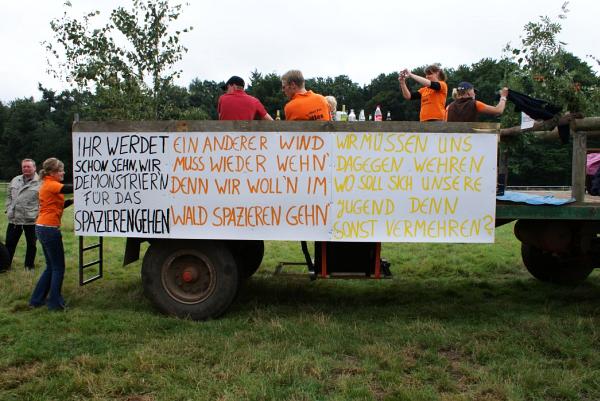 IHR WERDET
SCHON SEHN, WIR
DEMONSTRIERN
FÜR DAS
SPAZIERENGEHEN
EIN ANDERER WIND
MUSS WIEDER WEHN'
DENN WIR WOLL'N IM
WALD SPAZIEREN GEHN'
WIR MÜSSEN UNS
DAGEGEN WEHREN
WO SOLL SICH UNSERE
JUGEND DENN
SONST VERMEHREN?